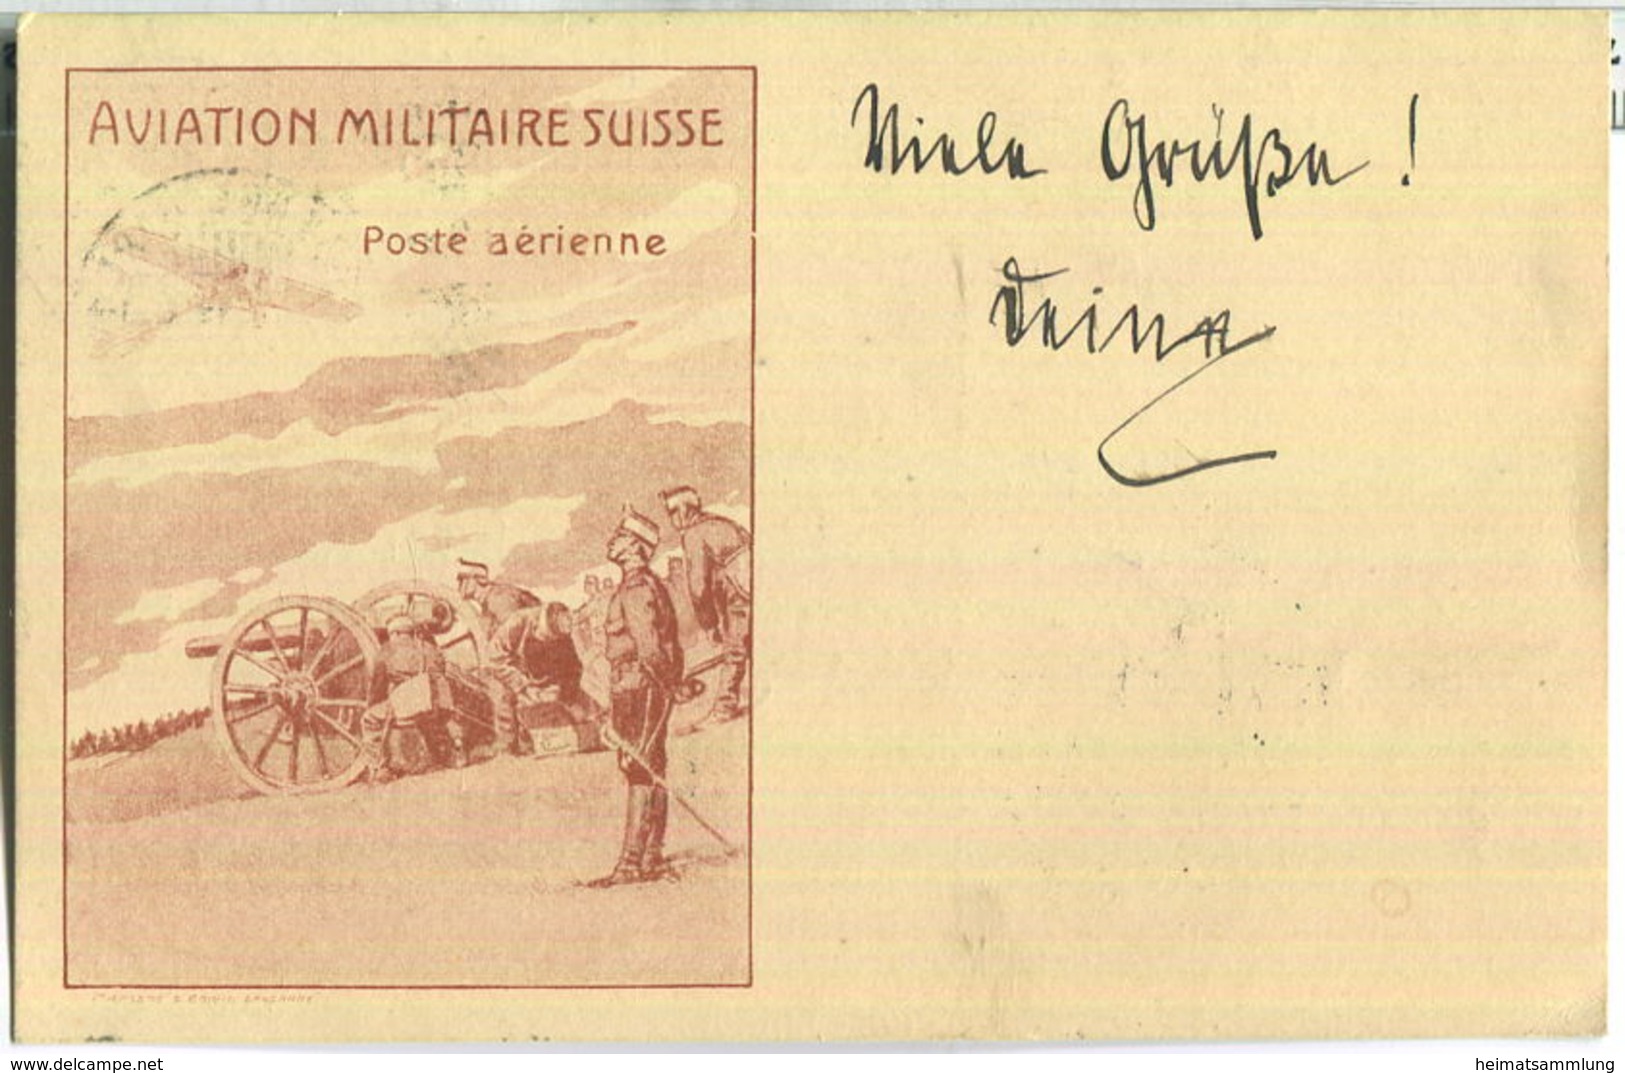 AVIATION MILITAIRE SUISSE
Poste aérienne
Viele Grüße !
Deine
delcampe.net
heimatsammlung